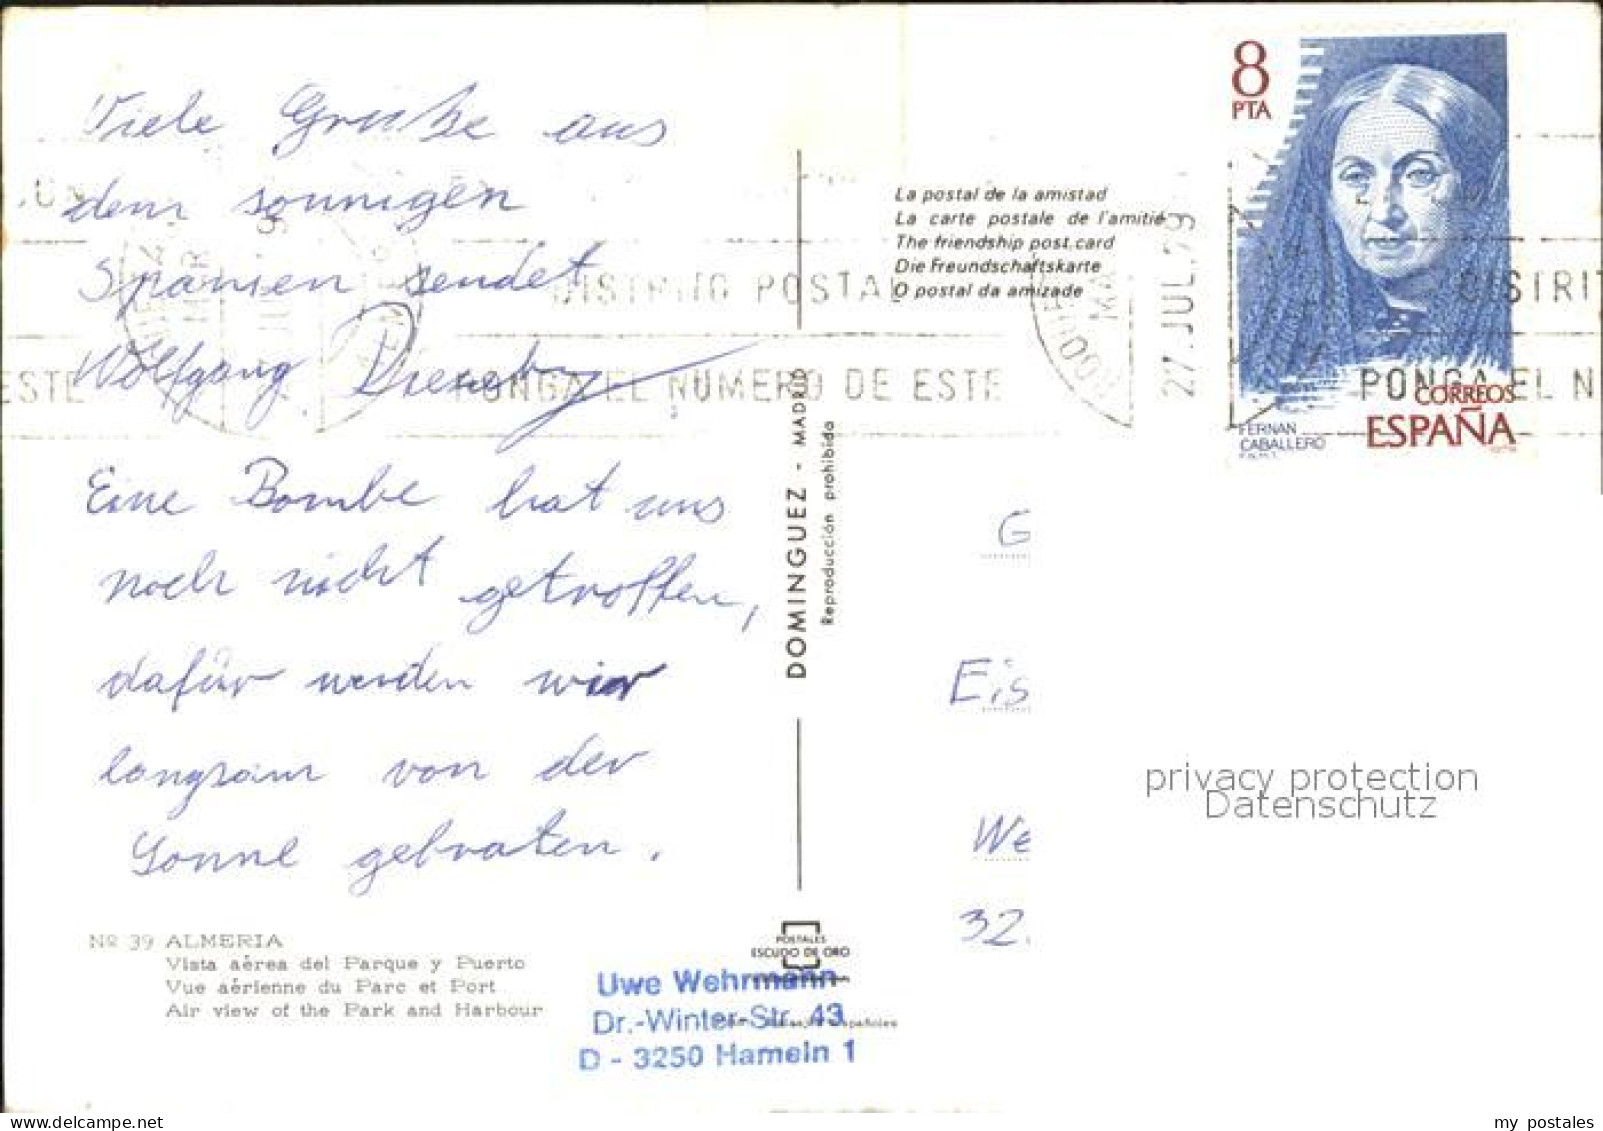 Viele Grüße aus
dem sonnigen
Spanien sendet
Wolfgang
Eine Bombe hat uns
noch nicht getroffen,
dafür werden wir
langsam von der
Sonne gebraten.
Nº 39 ALMERIA
Vista aérea del Parque y Puerto
Vue aérienne du Parc et Port
Air view of the Park and Harbour
DOMINGUEZ - MADRID
Reproducción prohibida
POSTALES
ESCUDO DE ORO
Uwe Wehrmann
Dr.-Winter-Str. 43
D - 3250 Hameln 1
La postal de la amistad
La carte postale de l'amitié
The friendship post card
Die Freundschaftskarte
O postal da amizade
8
PTA
FERNAN
CABALLERO
F.N.M.T.
CORREOS
ESPAÑA
DISTRITO POSTAL
PONGA EL NUMERO DE ESTE
ESTE
27 JUL 79
DISTRIT
PONGA EL N
G
Eis
We
32.
privacy protection
Datenschutz
my postales